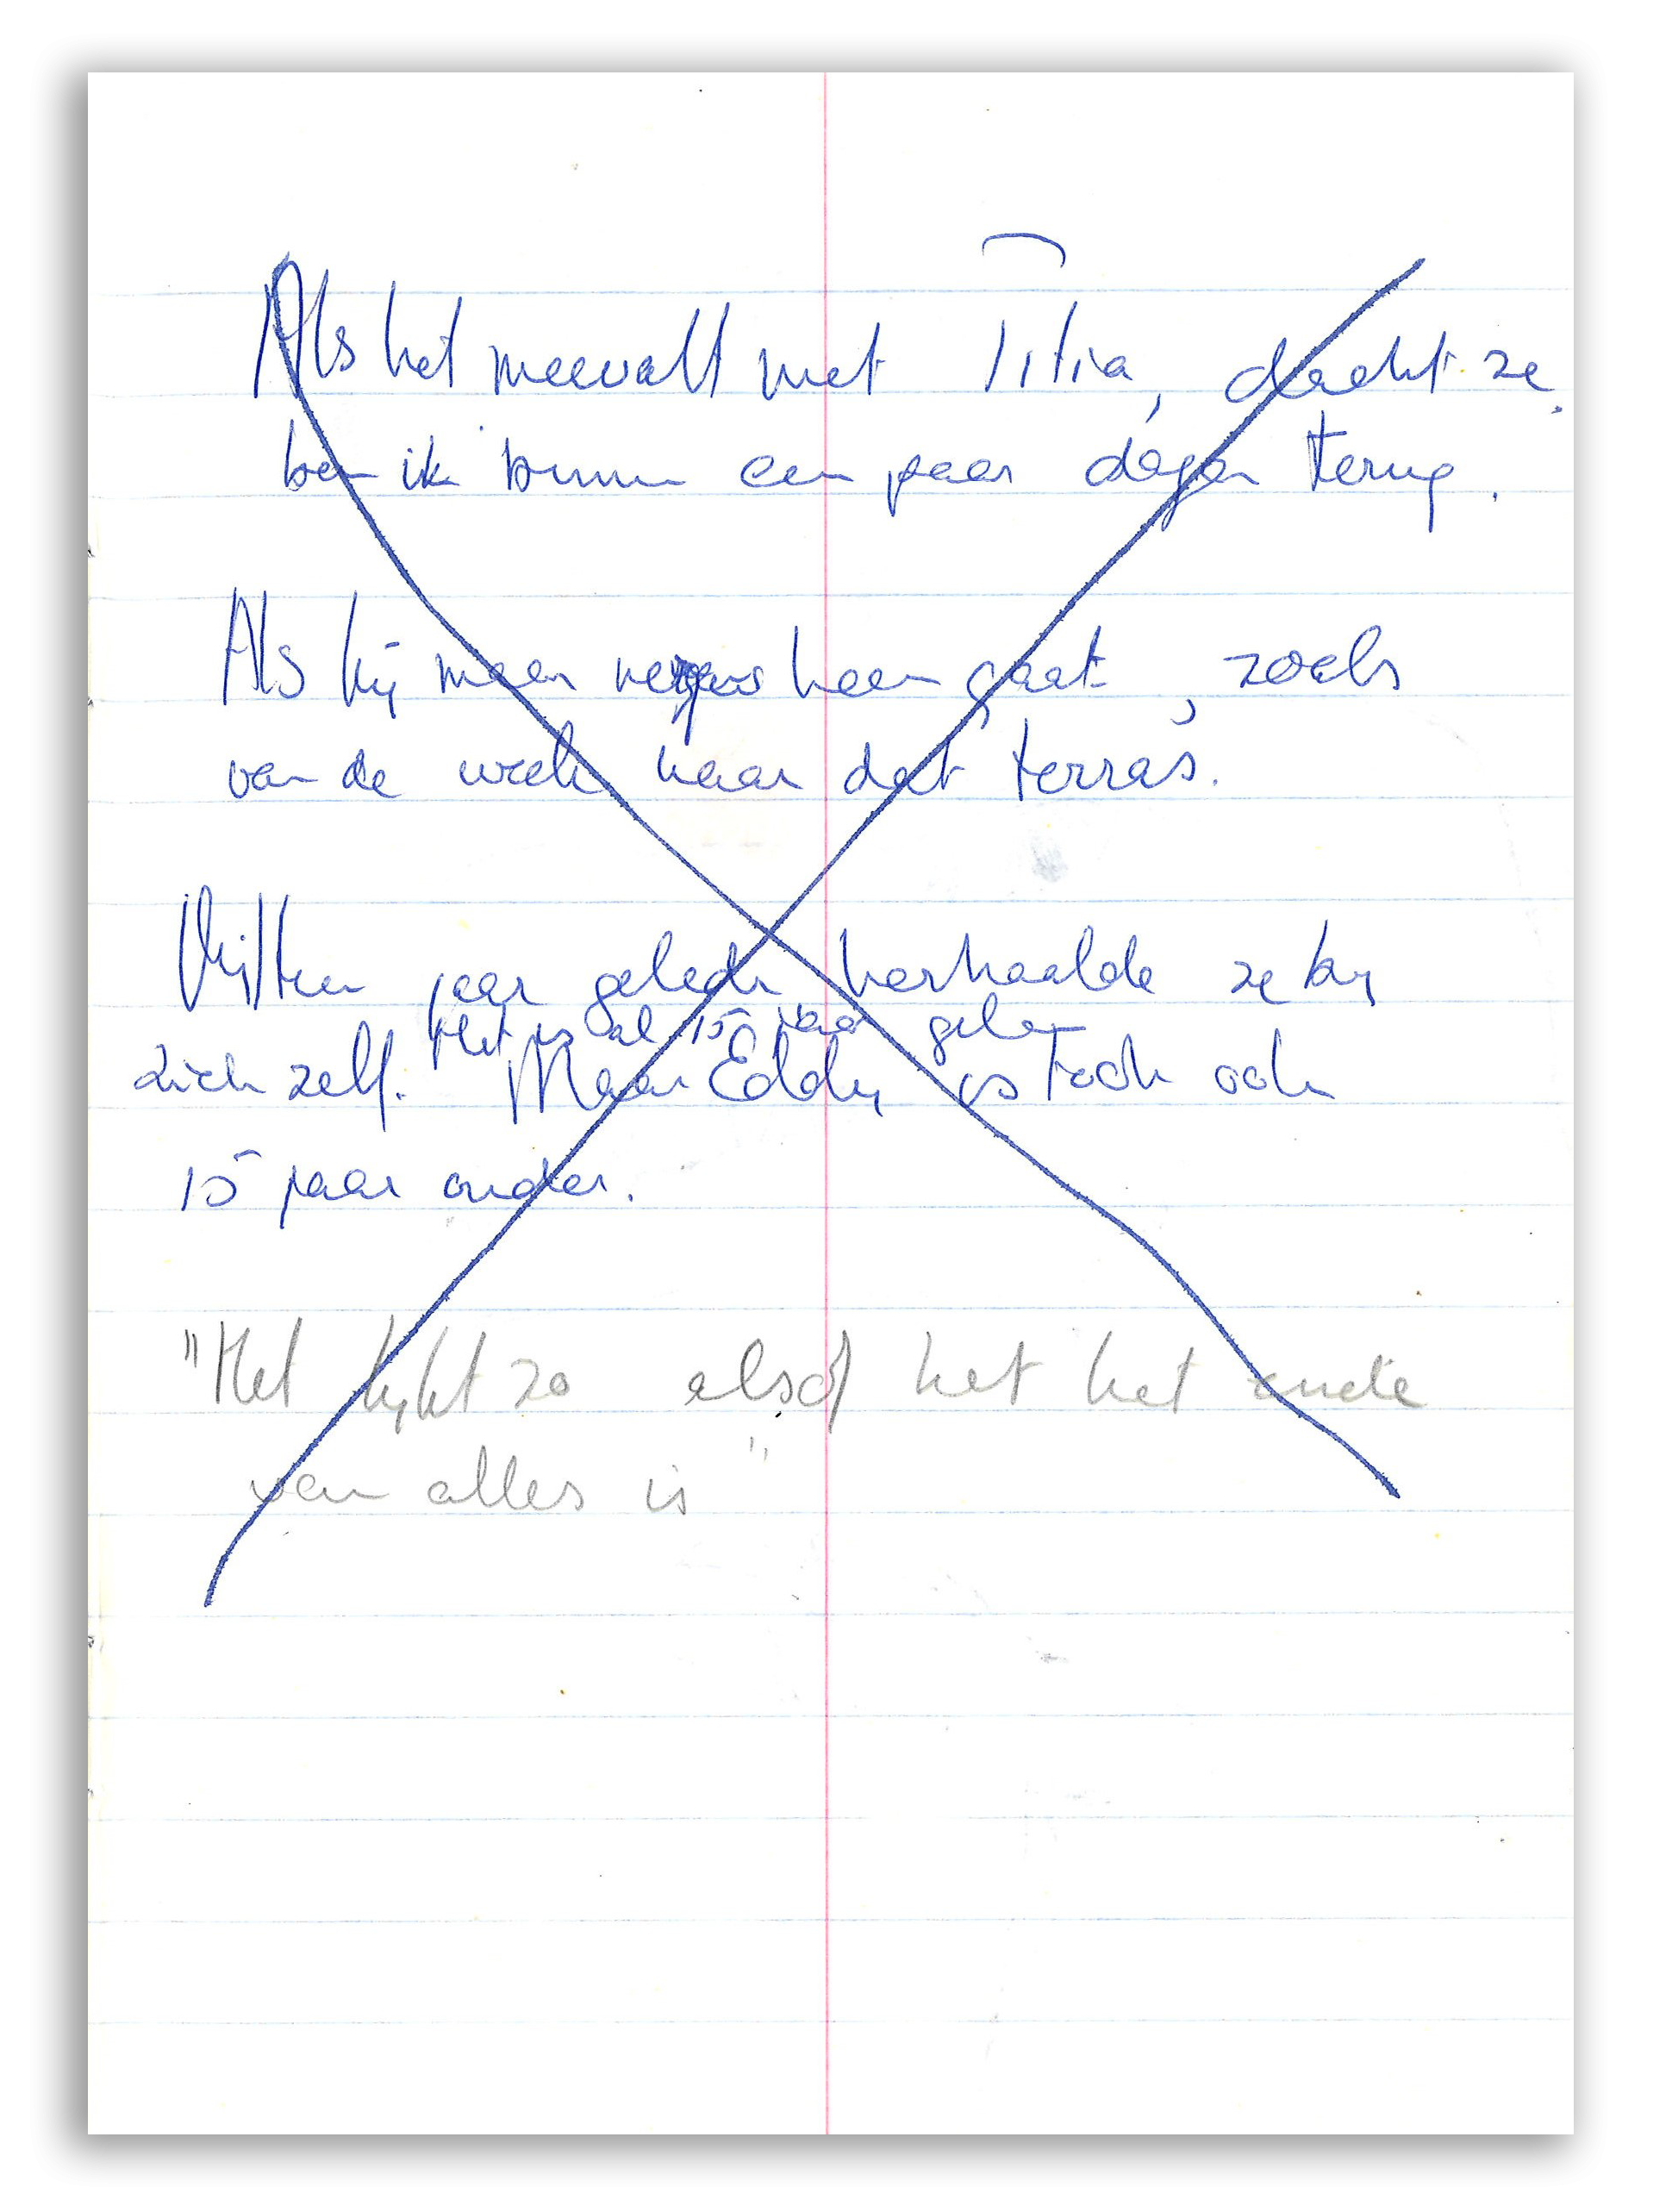 Als het meevalt met Titia, dacht ze,
ben ik binnen een paar dagen terug.
Als hij maar nergens heen gaat, zoals
van de week naar dat terras.
Vijftien jaar geleden herhaalde ze bij
Het is al 15 jaar gele
zich zelf. Maar Eddy is toch ook
15 jaar ouder.
"Het lijkt zo alsof het het einde
van alles is"